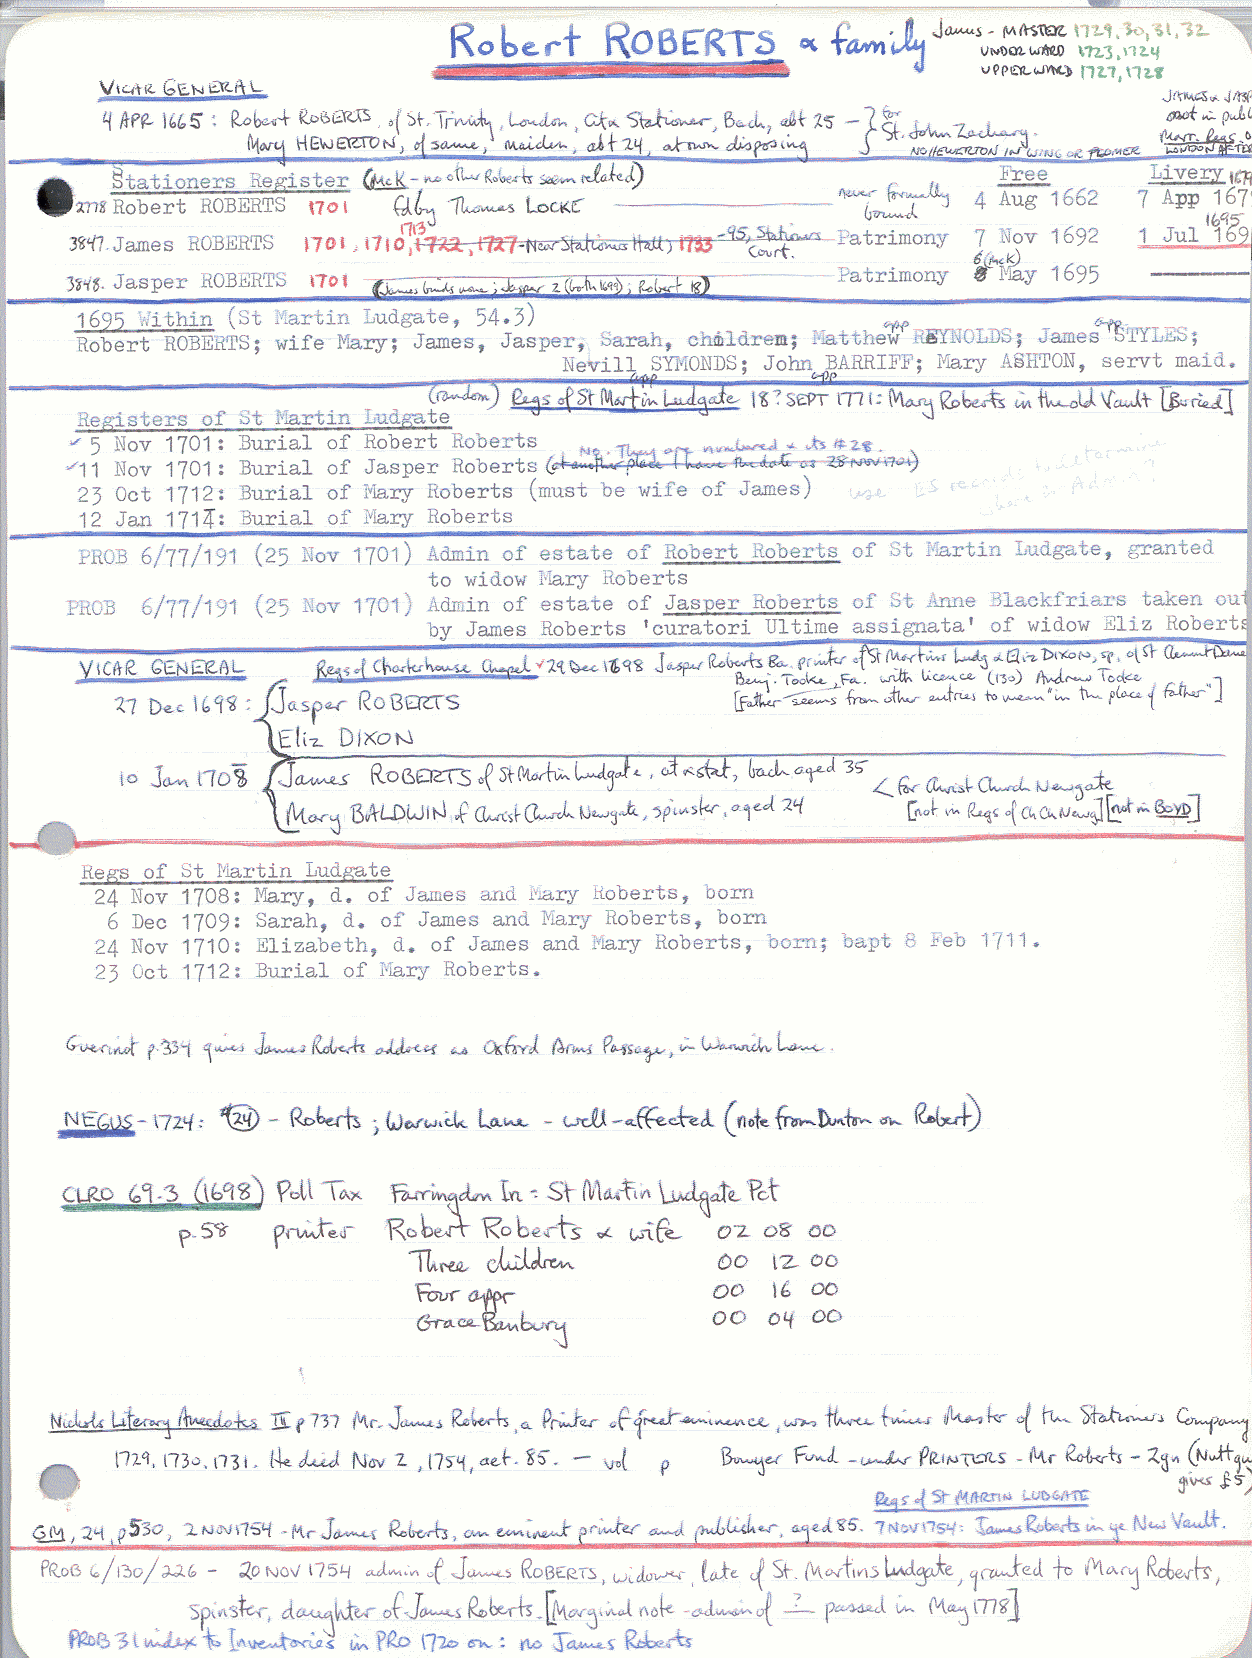 Robert ROBERTS & family
James - MASTER 1729, 30, 31, 32
UNDER WARD 1723, 1724
UPPER WARD 1727, 1728
VICAR GENERAL
JAMES & JASP
not in publ
Marr. Regs. o
LONDON AFTER
4 APR 1665: Robert ROBERTS, of St. Trinity, London, Cit & Stationer, Bach, abt 25 - } for
Mary HEWERTON, of same, maiden, abt 24, at own disposing St. John Zachary.
NO HEWERTON IN WING OR PLOMER
Stationers Register (McK - no other Roberts seem related) Free Livery
2778 Robert ROBERTS 1701 fd by Thomas LOCKE never formally bound 4 Aug 1662 7 App 167
1713 1695
3847. James ROBERTS 1701, 1710, 1722, 1727 - Near Stationers Hall; 1733 -95, Stationers Court. Patrimony 7 Nov 1692 1 Jul 169
6 (McK)
3848. Jasper ROBERTS 1701 (James binds none; Jasper 2 (both 1699); Robert 18) Patrimony 8 May 1695
1695 Within (St Martin Ludgate, 54.3)
Robert ROBERTS; wife Mary; James, Jasper, Sarah, children; Matthew REYNOLDS; James STYLES;
app app
Nevill SYMONDS; John BARRIFF; Mary ASHTON, servt maid.
app app
(random) Regs of St Martin Ludgate 18? SEPT 1771: Mary Roberts in the old Vault [Buried]
Registers of St Martin Ludgate
✓ 5 Nov 1701: Burial of Robert Roberts
No. They are numbered & its # 28.
✓11 Nov 1701: Burial of Jasper Roberts (at another place I have the date as 28 NOV 1701)
23 Oct 1712: Burial of Mary Roberts (must be wife of James)
12 Jan 1714: Burial of Mary Roberts
PROB 6/77/191 (25 Nov 1701) Admin of estate of Robert Roberts of St Martin Ludgate, granted
to widow Mary Roberts
PROB 6/77/191 (25 Nov 1701) Admin of estate of Jasper Roberts of St Anne Blackfriars taken out
by James Roberts 'curatori Ultime assignata' of widow Eliz Roberts
VICAR GENERAL Regs of Charterhouse Chapel ✓ 29 Dec 1698 Jasper Roberts Ba. printer of St Martins Ludg & Eliz DIXON, sp. of St Clement Dane
Benj. Tooke, Fa. with licence (130) Andrew Tooke
27 Dec 1698: Jasper ROBERTS [Father seems from other entries to mean "in the place of father"]
Eliz DIXON
10 Jan 1708 James ROBERTS of St Martin Ludgate, cit & stat, bach aged 35
< for Christ Church Newgate
Mary BALDWIN of Christ Church Newgate, spinster, aged 24 [not in Regs of Ch Ch Newg] [not in BOYD]
Regs of St Martin Ludgate
24 Nov 1708: Mary, d. of James and Mary Roberts, born
6 Dec 1709: Sarah, d. of James and Mary Roberts, born
24 Nov 1710: Elizabeth, d. of James and Mary Roberts, born; bapt 8 Feb 1711.
23 Oct 1712: Burial of Mary Roberts.
Guerinot p.334 gives James Roberts address as Oxford Arms Passage, in Warwick Lane.
NEGUS - 1724: #24 - Roberts; Warwick Lane - well-affected (note from Dunton on Robert)
CLRO 69.3 (1698) Poll Tax Farringdon In: St Martin Ludgate Pct
p.58 printer Robert Roberts & wife 02 08 00
Three children 00 12 00
Four appr 00 16 00
Grace Banbury 00 04 00
Nichols Literary Anecdotes III p 737 Mr. James Roberts, a Printer of great eminence, was three times Master of the Stationers Company
1729, 1730, 1731. He died Nov 2, 1754, aet. 85. - vol p Bowyer Fund - under PRINTERS - Mr Roberts - 2gn (Nutt
gives £5)
Regs of St MARTIN LUDGATE
GM, 24, p530, 2 NOV 1754 - Mr James Roberts, an eminent printer and publisher, aged 85. 7 NOV 1754: James Roberts in ye New Vault.
PROB 6/130/226 - 20 NOV 1754 admin of James ROBERTS, widower, late of St. Martins Ludgate, granted to Mary Roberts,
Spinster, daughter of James Roberts. [Marginal note - admin of ? passed in May 1778]
PROB 31 index to Inventories in PRO 1720 on: no James Roberts